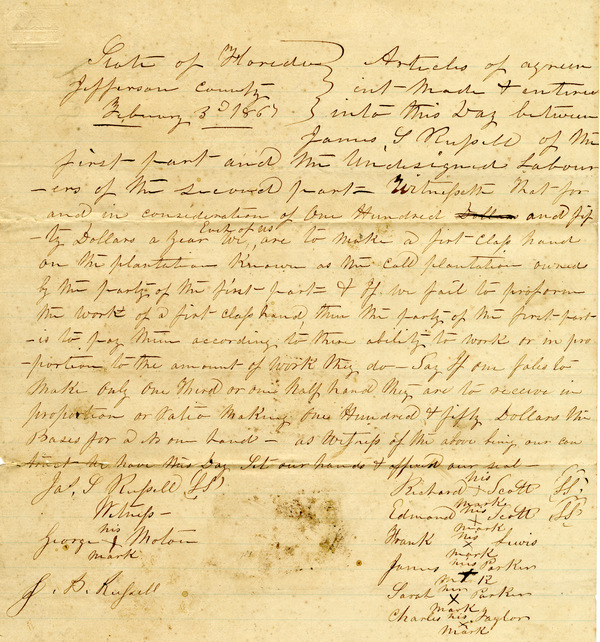 State of Florida } Articles of agreem
Jefferson County } ent Made & entired
Febuary 3d 1867 } into this Day between
James S Russell of the
first part and the Undersigned Labour
-ers of the second part Witnesseth That for
and in consideration of One Hundred Dollars and fif
-ty Dollars a Year We, Each of us are to Make a first class hand
on the plantation Known as the Call plantation owned
by the party of the first part & If we fail to proform
the work of a first class hand then the party of the first part
is to pay them according to there ability to work or in pro
-portion to the amount of work they do - Say If one fales to
Make only one Third or one half hand they are to receive in
proportion or Ratio Making One Hundred & fifty Dollars the
Bases for a No one hand - as Witness of the above being our con
tract We have this Day Set our hands & affixed our seal -
Jas, S Russell LS
Witness -
George his X mark Moton
J. B. Russell
Richard his X mark Scott LS
Edmond his X mark Scott LS
Frank his X mark Lewis
James his X mark Parker
Sarah her X mark Parker
Charles his X mark Taylor